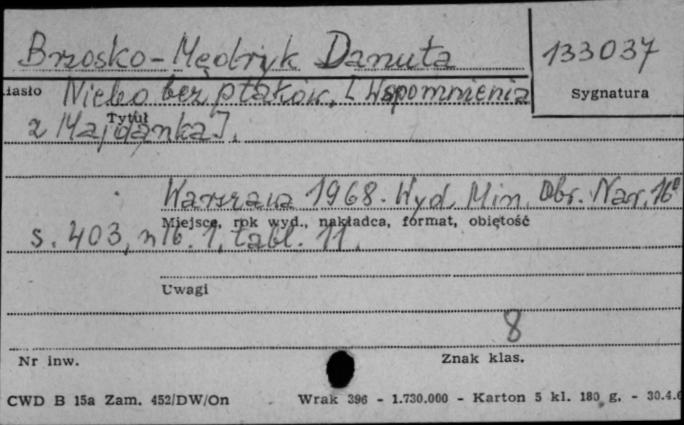 Brzosko-Mędryk Danuta
133037
iasło
Niebo bez ptaków, [Wspomnienia
Sygnatura
Tytuł
z Majdanka].
Warszawa 1968. Wyd. Min. Obr. Nar. 16°
Miejsce, rok wyd., nakładca, format, objętość
s. 403, nlb. 1, tabl. 11.
Uwagi
8
Nr inw.
Znak klas.
CWD B 15a Zam. 452/DW/On Wrak 396 - 1.730.000 - Karton 5 kl. 180 g. - 30.4.6